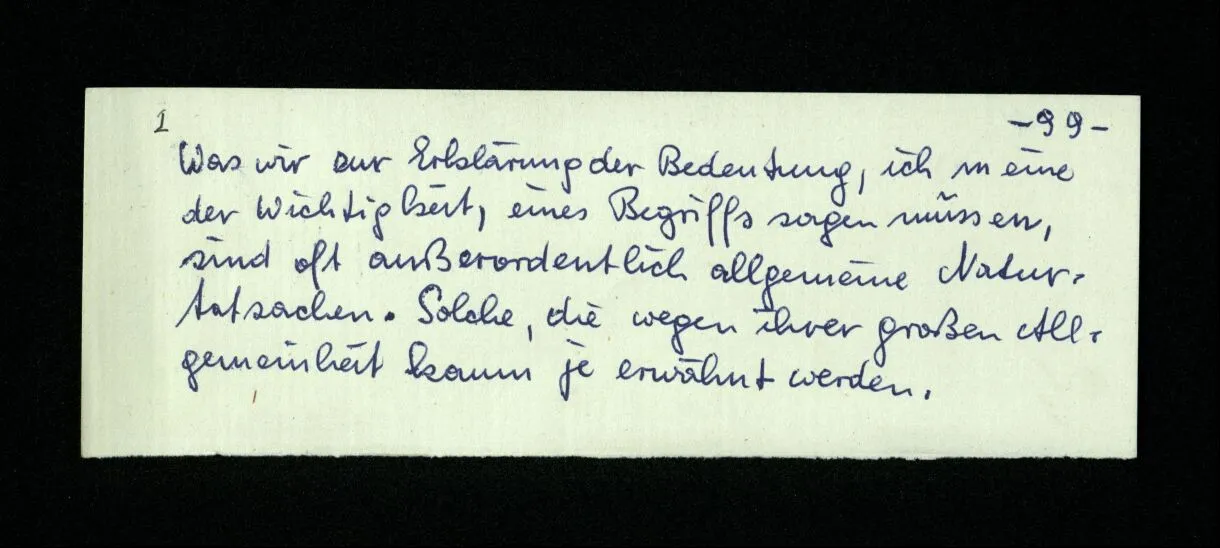 1
-99-
Was wir zur Erklärung der Bedeutung, ich meine
der Wichtigkeit, eines Begriffs sagen müssen,
sind oft außerordentlich allgemeine Natur-
tatsachen. Solche, die wegen ihrer großen All-
gemeinheit kaum je erwähnt werden.